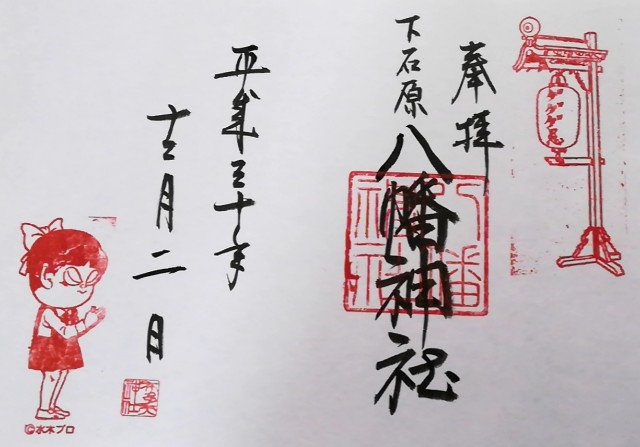 奉拝
下石原
八幡神社
平成三十年
十二月二日
ゲゲゲ忌
八幡神社
©水木プロ